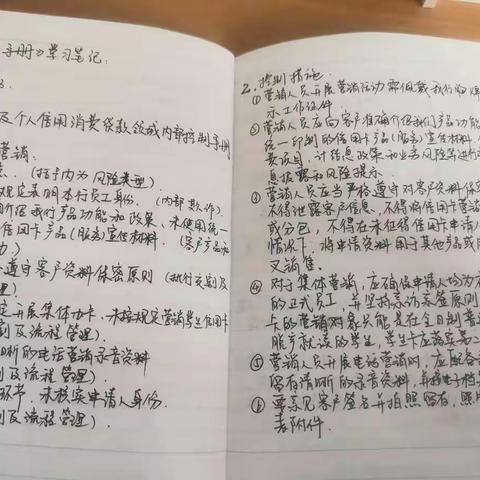 手册》学习笔记:
及个人信用消费贷款领域内部控制手册
营销.
(括号内为风险类型)
规定表明本行员工身份. (内部欺诈)
介绍我行产品功能和政策、未使用统一
信用卡产品(服务)宣传材料. (客户产品和
遵守客户资料保密原则 (执行交割及
管理)
开展集体办卡、未按规定营销学生信用卡
割及流程管理).
清晰的电话营销录音资料
割及流程管理).
环节、未核实申请人身份.
割及流程管理)
2. 控制措施.
①营销人员开展营销活动需佩戴我行
示工作证件
②营销人员应向客户准确介绍我行产品功能
统一印制的信用卡产品(服务)宣传材料,
费项目、计结息政策和业务风险等进行
息披露和风险提示.
③营销人员应当严格遵守对客户资料保密
不得泄露客户信息, 不得将信用卡营销
或分包, 不得在未征得信用卡申请人
情况下, 将申请资料用于其他产品或
叉销售.
④对于集体营销, 应确保申请人均为
的正式员工, 并坚持亲访亲签原则
卡的营销对象只能是在全日制普通
脱产就读的学生, 学生卡应落实第二
⑤营销人员开展电话营销时, 应配备
留有清晰的录音资料, 并将电子档案
⑥要亲见客户签名并拍照留存, 照片
表附件.